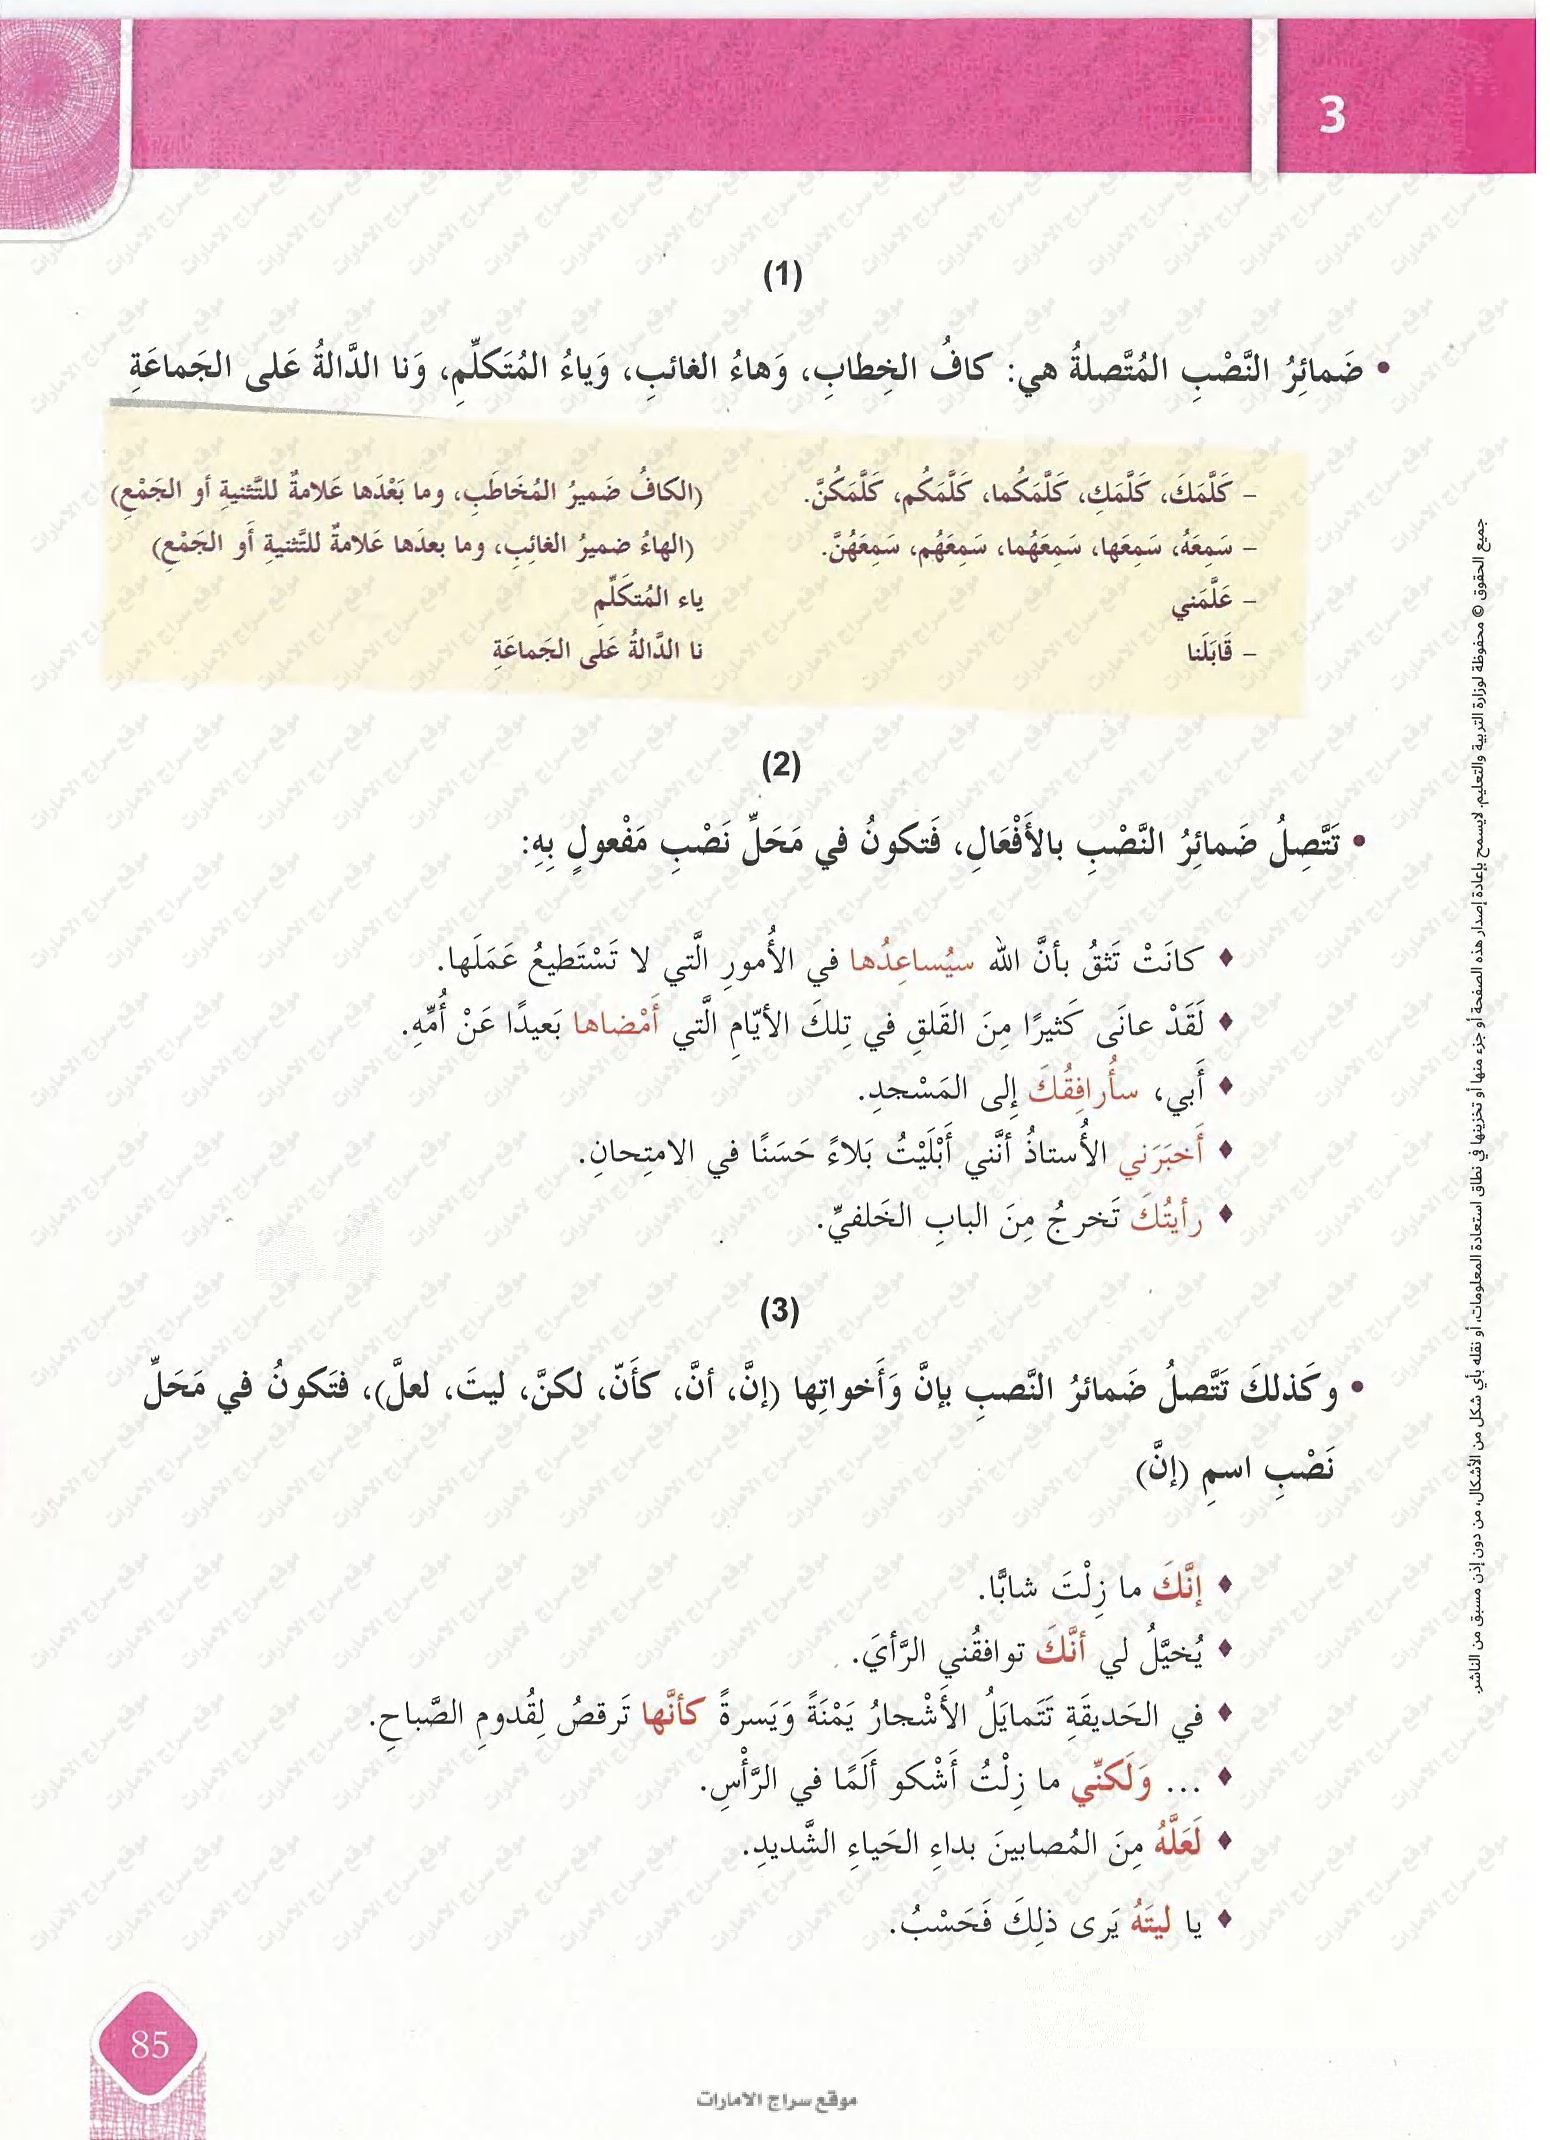 3
(1)
• ضَمائِرُ النَّصْبِ المُتَّصلةُ هي: كافُ الخِطابِ، وَهاءُ الغائبِ، وَياءُ المُتَكلِّمِ، وَنا الدَّالةُ عَلى الجَماعَةِ
– كَلَّمَكَ، كَلَّمَكِ، كَلَّمَكُما، كَلَّمَكُم، كَلَّمَكُنَّ. (الكافُ ضَميرُ المُخَاطَبِ، وما بَعْدَها عَلامةٌ للتَّثنيةِ أو الجَمْعِ)
– سَمِعَهُ، سَمِعَها، سَمِعَهُما، سَمِعَهُم، سَمِعَهُنَّ. (الهاءُ ضميرُ الغائِبِ، وما بعدَها عَلامةٌ للتَّثنيةِ أَو الجَمْعِ)
– عَلَّمَني ياء المُتكَلِّمِ
– قَابَلَنا نا الدَّالةُ عَلى الجَماعَةِ
(2)
• تَتَّصِلُ ضَمائِرُ النَّصْبِ بالأَفْعَالِ، فَتكونُ في مَحَلِّ نَصْبِ مَفْعولٍ بِهِ:
♦ كانَتْ تَثقُ بأنَّ الله سيُساعِدُها في الأُمورِ الَّتي لا تَسْتَطيعُ عَمَلَها.
♦ لَقَدْ عانَى كَثيرًا مِنَ القَلقِ في تِلكَ الأيّامِ الَّتي أَمْضاها بَعيدًا عَنْ أُمِّهِ.
♦ أَبي، سأُرافِقُكَ إِلى المَسْجدِ.
♦ أَخبَرَني الأُستاذُ أنَّني أَبْلَيْتُ بَلاءً حَسَنًا في الامتِحانِ.
♦ رأيتُكَ تَخرجُ مِنَ البابِ الخَلفيِّ.
(3)
• وكَذلكَ تَتَّصلُ ضَمائرُ النَّصبِ بإنَّ وَأَخواتِها (إنَّ، أنَّ، كأَنّ، لكنَّ، ليتَ، لعلَّ)، فتَكونُ في مَحَلِّ
نَصْبِ اسمِ (إنَّ)
♦ إنَّكَ ما زِلْتَ شابًّا.
♦ يُخيَّلُ لي أنَّكَ توافقُني الرَّأيَ.
♦ في الحَديقَةِ تَتَمايَلُ الأَشْجارُ يَمْنَةً وَيَسرةً كأنَّها تَرقصُ لِقُدومِ الصَّباحِ.
♦ ... وَلَكنِّي ما زِلْتُ أَشْكو أَلَمًا في الرَّأْسِ.
♦ لَعَلَّهُ مِنَ المُصابينَ بداءِ الحَياءِ الشَّديدِ.
♦ يا ليتَهُ يَرى ذلِكَ فَحَسْبُ.
جميع الحقوق © محفوظة لوزارة التربية والتعليم. لايسمح بإعادة إصدار هذه الصفحة أو جزء منها أو تخزينها في نطاق استعادة المعلومات، أو نقله بأي شكل من الأشكال، من دون إذن مسبق من الناشر.
85
موقع سراج الامارات